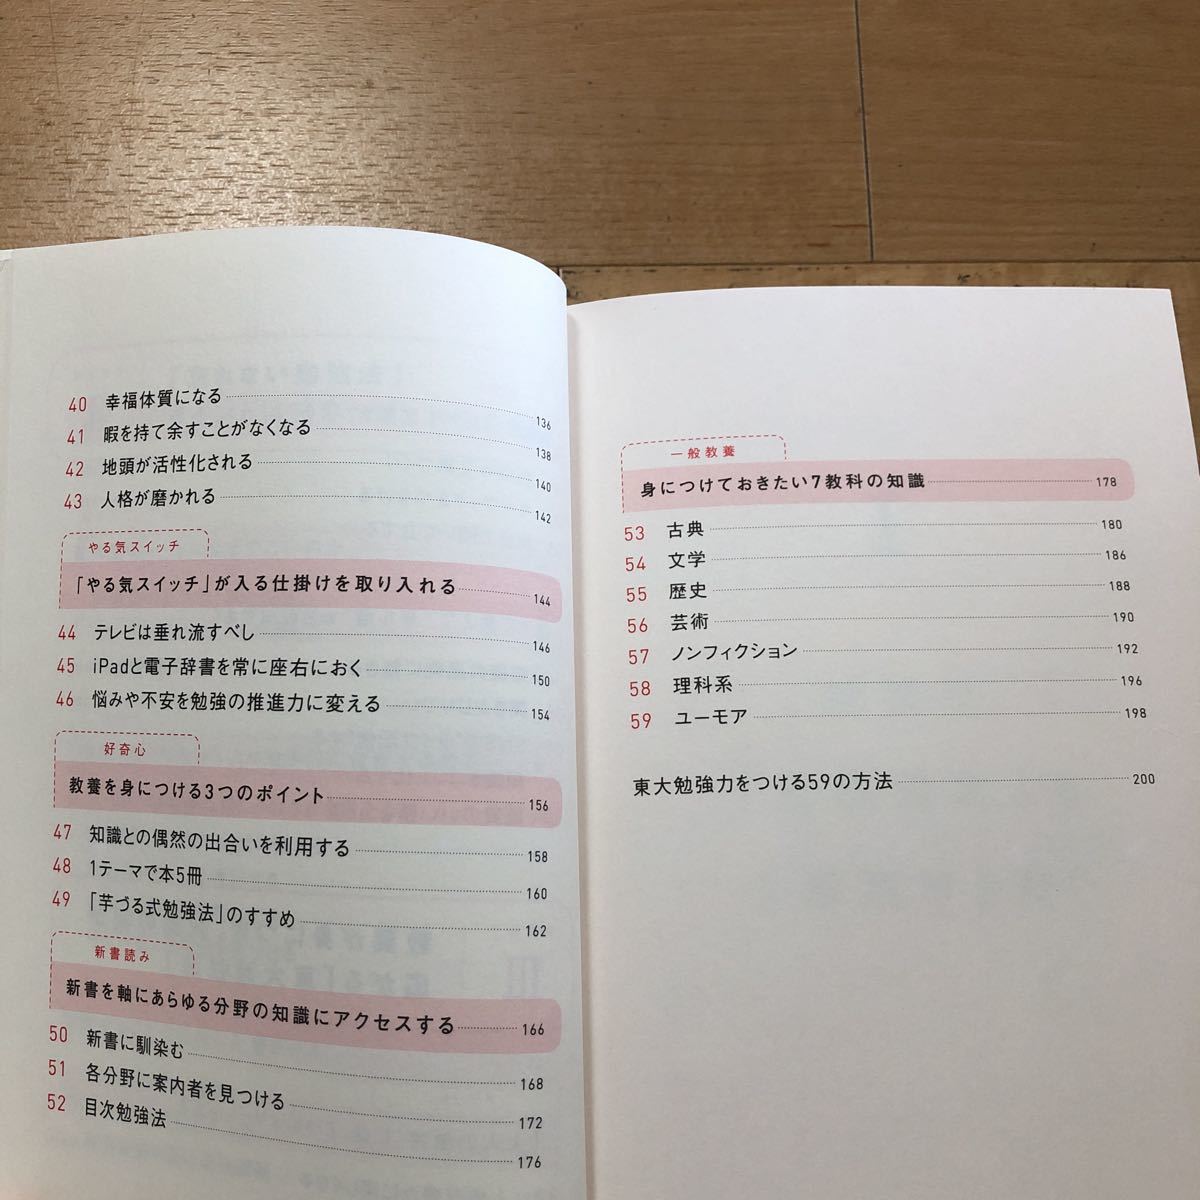 40 幸福体質になる 136
41 暇を持て余すことがなくなる 138
42 地頭が活性化される 140
43 人格が磨かれる 142
やる気スイッチ
「やる気スイッチ」が入る仕掛けを取り入れる 144
44 テレビは垂れ流すべし 146
45 iPadと電子辞書を常に座右におく 150
46 悩みや不安を勉強の推進力に変える 154
好奇心
教養を身につける3つのポイント 156
47 知識との偶然の出合いを利用する 158
48 1テーマで本5冊 160
49 「芋づる式勉強法」のすすめ 162
新書読み
新書を軸にあらゆる分野の知識にアクセスする 166
50 新書に馴染む 168
51 各分野に案内者を見つける 172
52 目次勉強法 176
一般教養
身につけておきたい7教科の知識 178
53 古典 180
54 文学 186
55 歴史 188
56 芸術 190
57 ノンフィクション 192
58 理科系 196
59 ユーモア 198
東大勉強力をつける59の方法 200